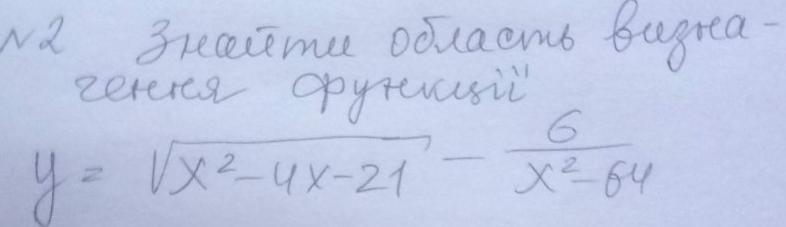 №2 Знайти область визна-
чення функції
y = √(x²-4x-21) - 6/(x²-64)